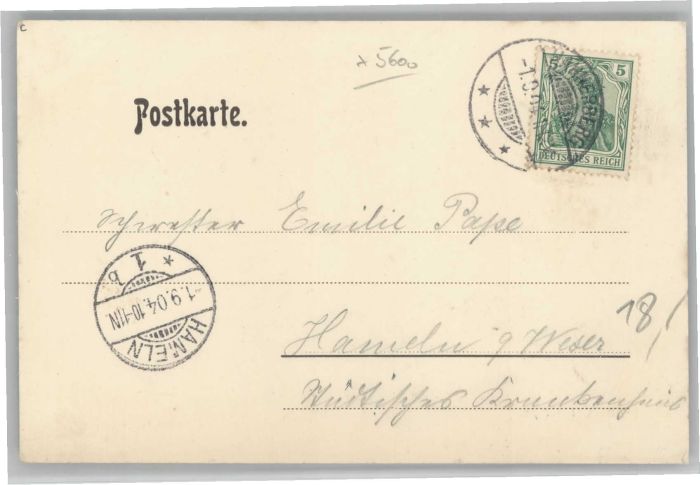 c
x 5600
Postkarte.
-1.9.0
5 5
DEUTSCHES REICH
Schwester Emilie Pape
HAMELN
* 1 b
-1.9.04.10-11N.
18/
Hameln a/ Weser
Städtisches Krankenhaus